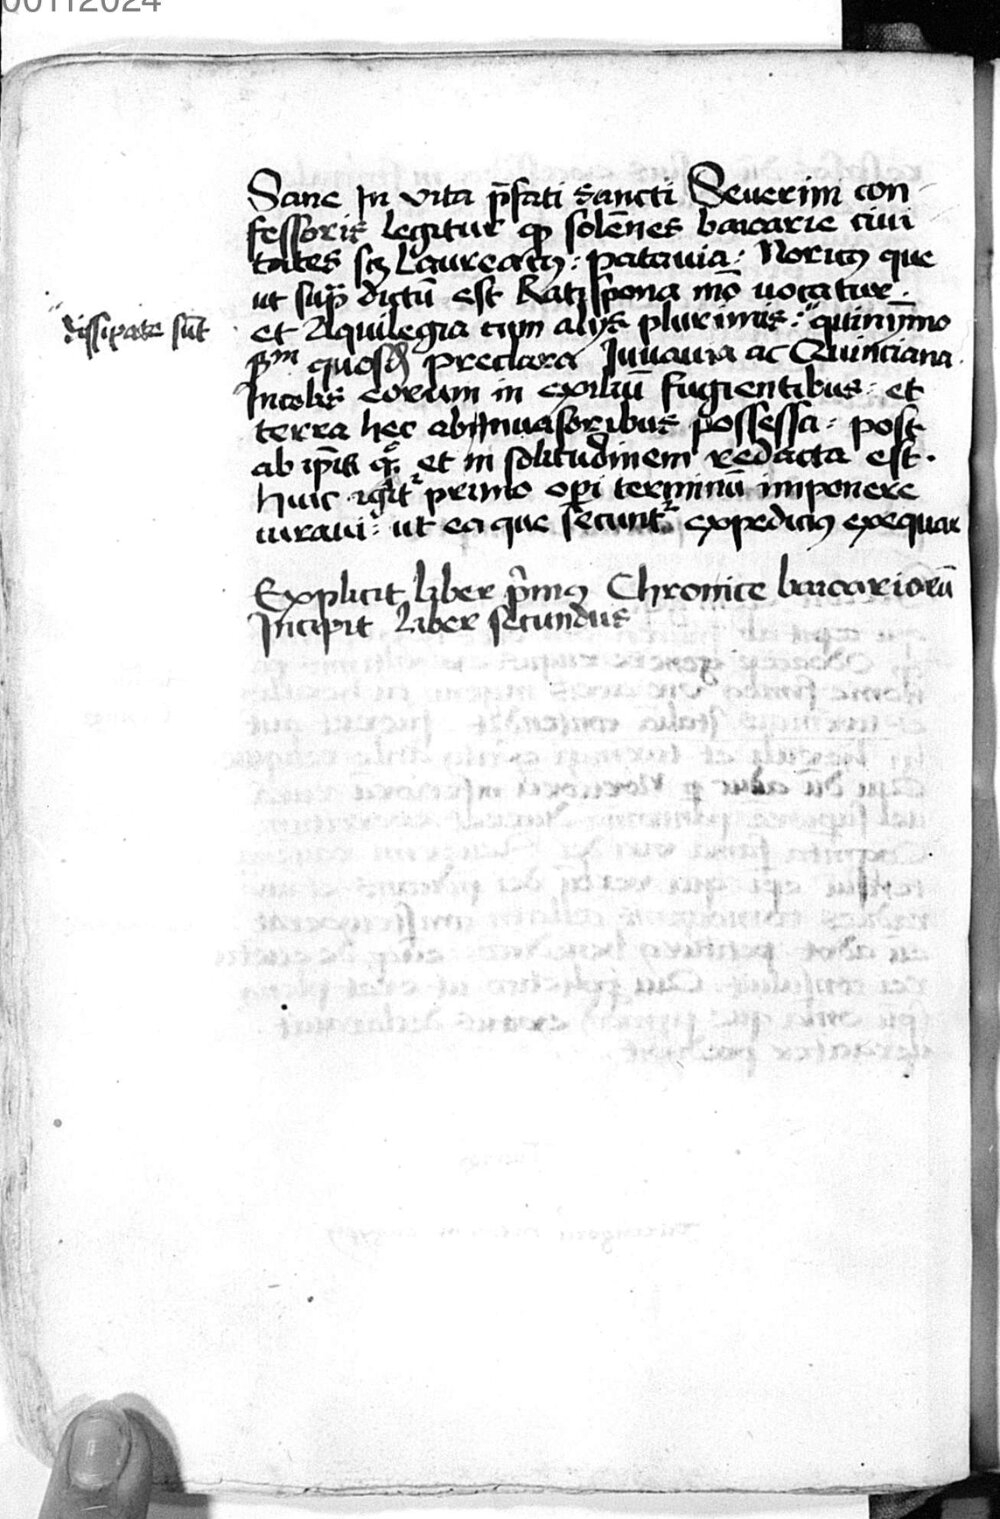 00112024
Sane In vita p̄fati sancti Seuerini con
fessoris legitur qꝫ solēnes baioarie ciui
tates scꝫ Laureacꝯ: patauia: Noricꝯ que
ut sup̄ dictū est Ratispona mō uocatur.
dissipate sūt
et Aquilegia cum alijs plurimis: quinȳmo
quosdā preclara Iuuauia ac Quinciana.
Incolis eorum in exiliū fugientibus: et
terra hec ab Inuasoribus possessa: post
ab ip̄is et in solitudinem redacta est.
Huic igit᷑ primo op̄i terminū imponere
curaui: ut ea que secunt᷑ expedicꝯ exequar
Explicit liber p̄mꝯ Chronice baioariorū
Incipit Liber secundus